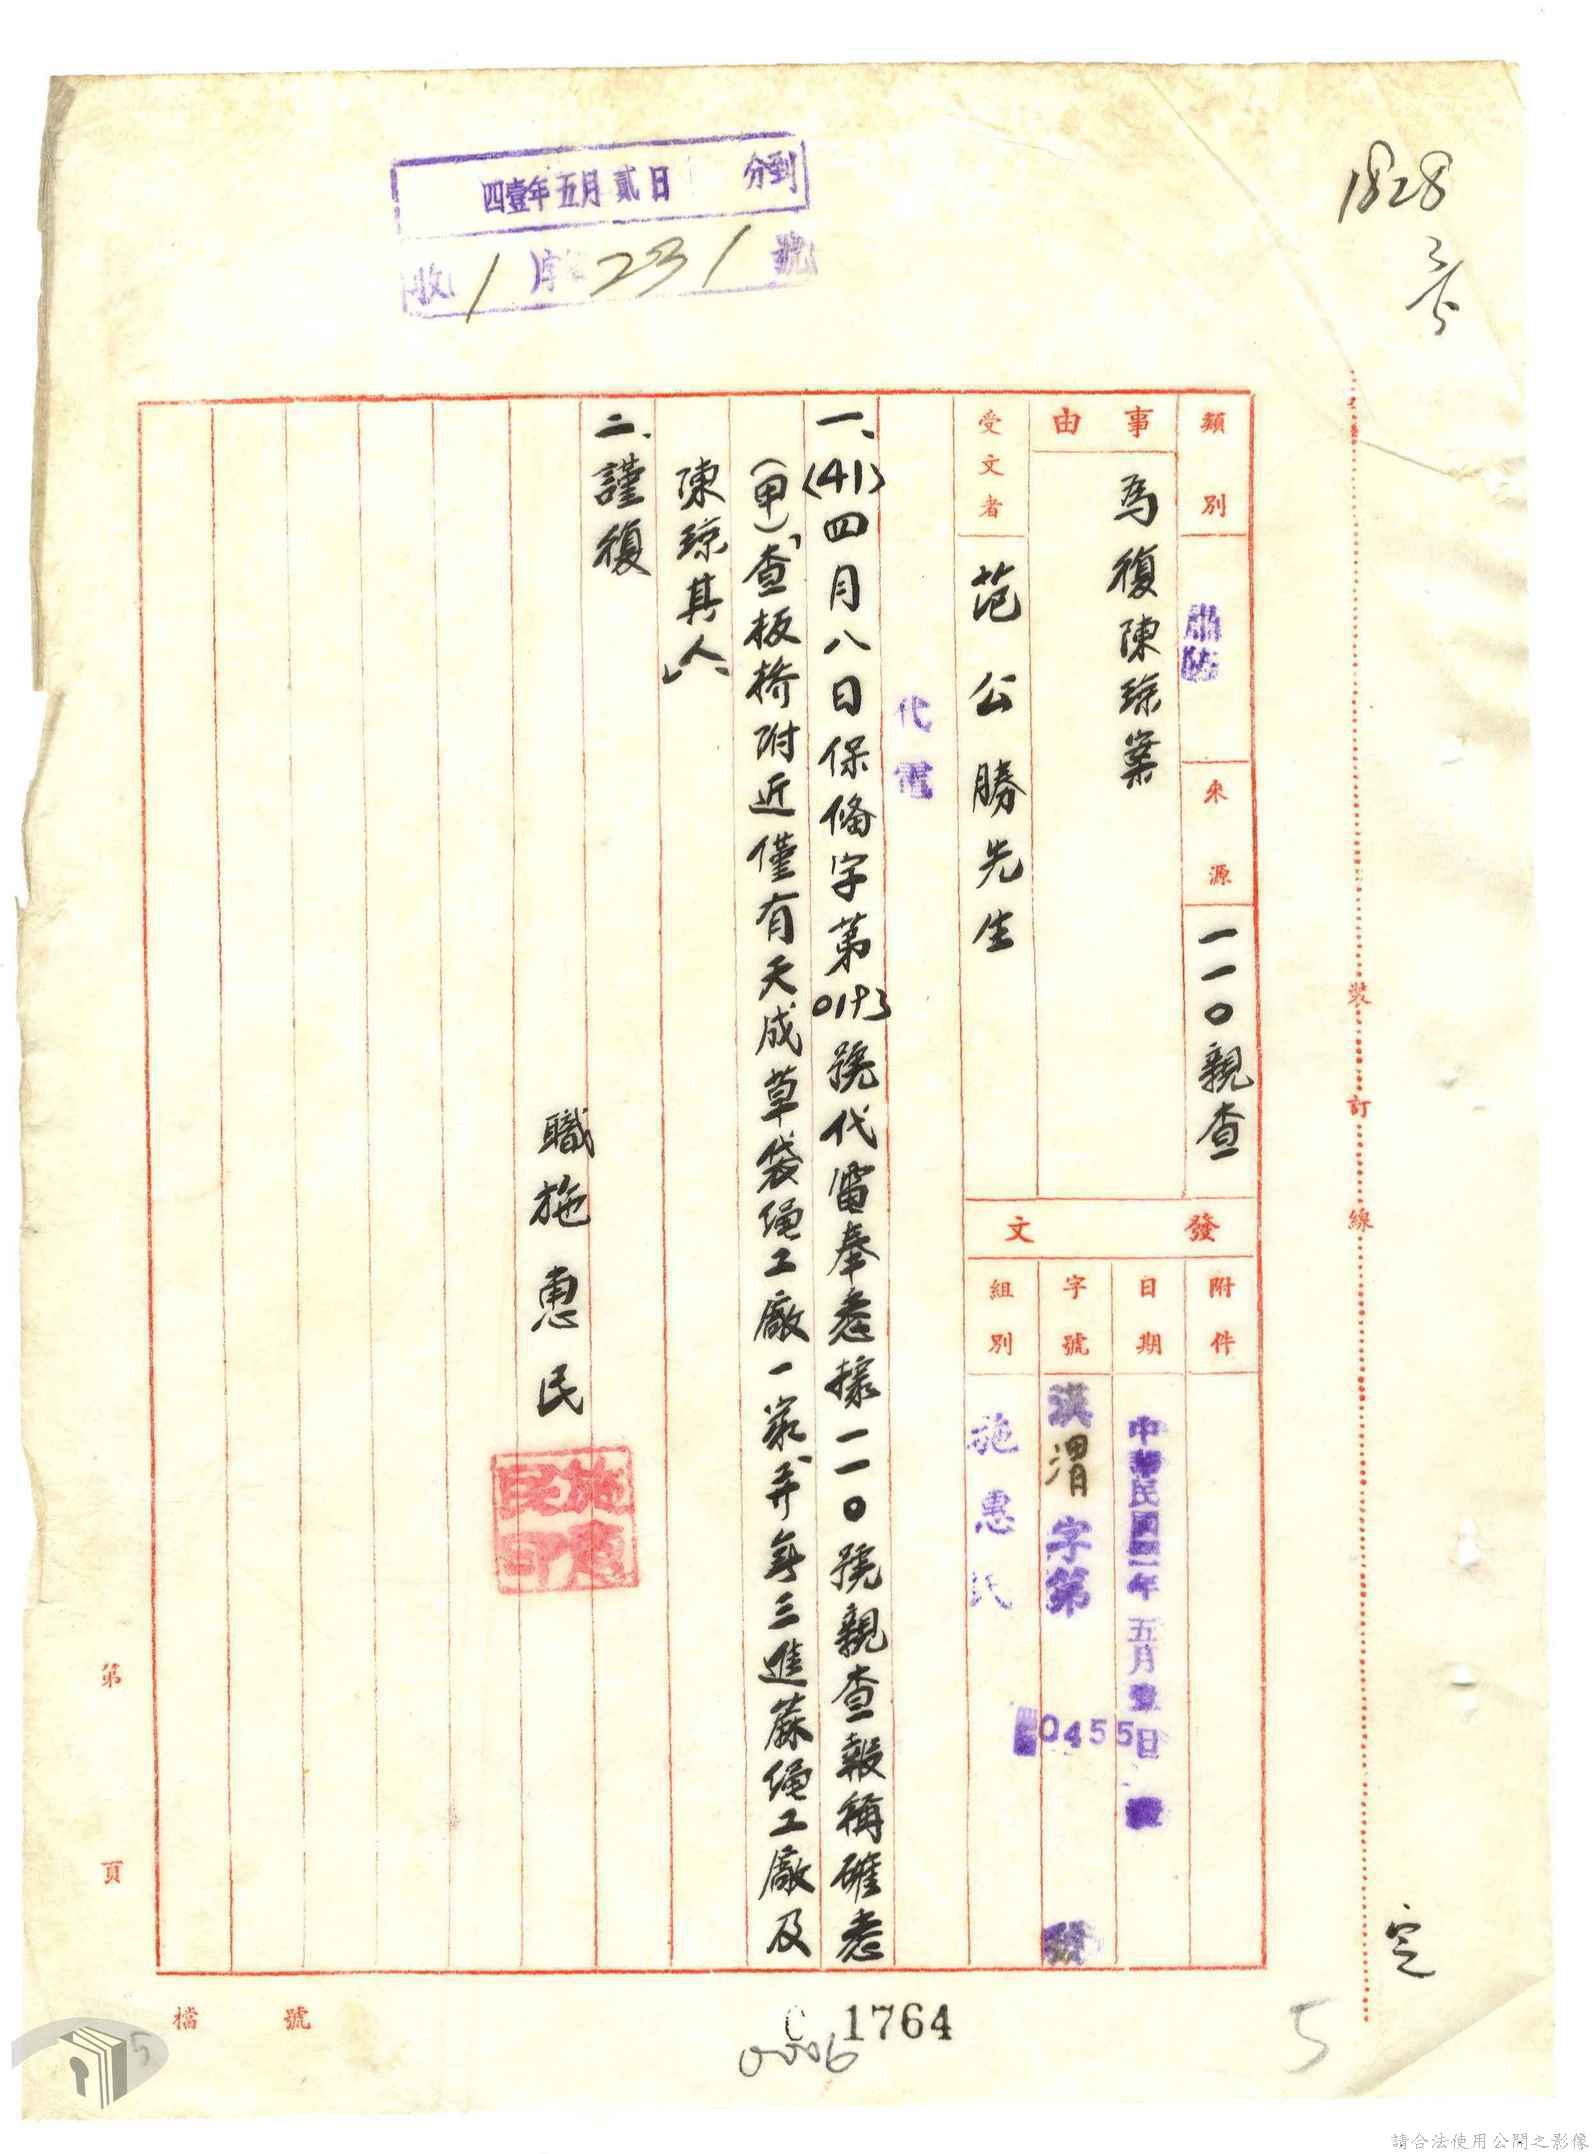 四壹年五月貳日 分到
收1字231號
1828
類別 肅防
來源 一一〇親查
事由 為復陳琼案
受文者 范公勝先生
發文
附件
日期 中華民國四一年五月壹日
字號 漢渭字第 0455 號
組別 施惠民
代電
一、(41)四月八日保偹字第0193號代電奉悉據一一〇號親查報稱確悉
(甲)「查板橋附近僅有天成草袋繩工廠一家」并無三進蔴繩工廠及
陳琼其人」、
二、謹復
職施惠民
施惠民印
裝訂線
第 頁
檔 號
C 1764
0006
5
5
請合法使用公開之影像